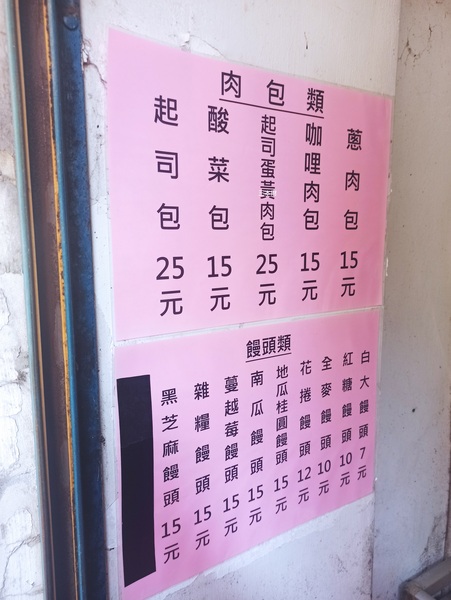 肉包類
蔥肉包15元
咖哩肉包15元
起司蛋黃肉包25元
酸菜包15元
起司包25元
饅頭類
白大饅頭7元
紅糖饅頭10元
全麥饅頭10元
花捲饅頭12元
地瓜桂圓饅頭15元
南瓜饅頭15元
蔓越莓饅頭15元
雜糧饅頭15元
黑芝麻饅頭15元